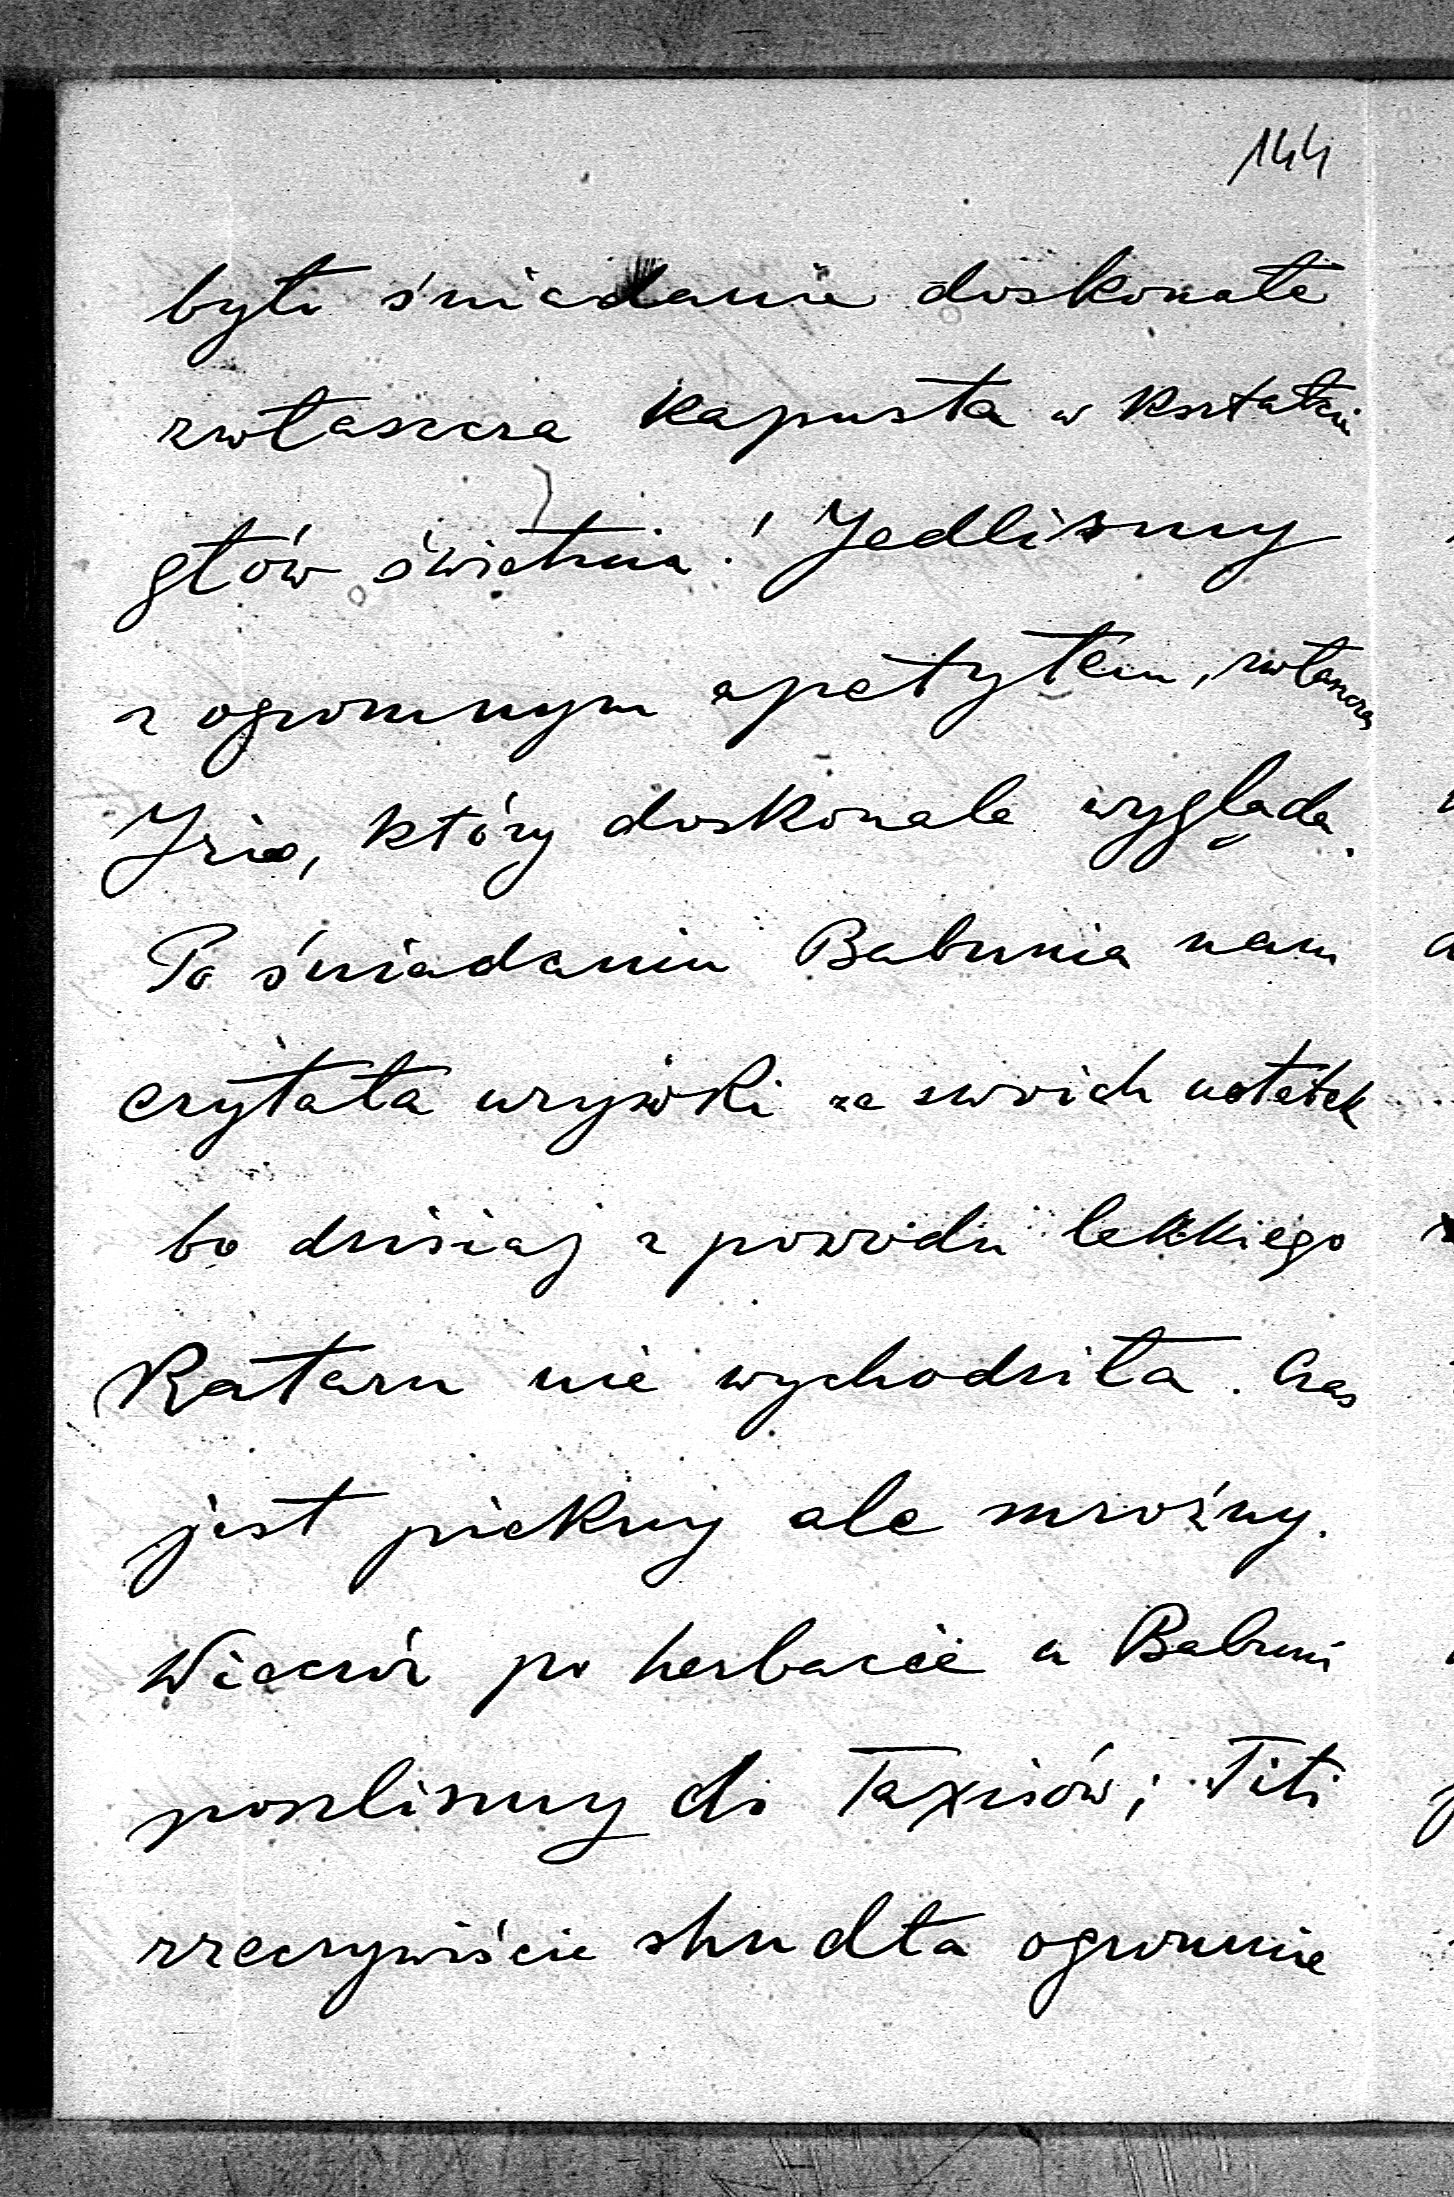 144
było śniadanie doskonałe
zwłaszcza kapusta w kształcie
głów świetna! Jedlismy
z ogromnym apetytem, zwłaszcza
Izio, który doskonale wygląda.
Po śniadaniu Babunia nam
czytała urywki ze swoich notatek
bo dzisiaj z powodu lekkiego
Kataru nie wychodziła. Czas
jest piekny ale mroźny.
Wieczór po herbacie u Babuni
poszlismy do Taxisów; Titi
rzeczywiście shudła ogromnie